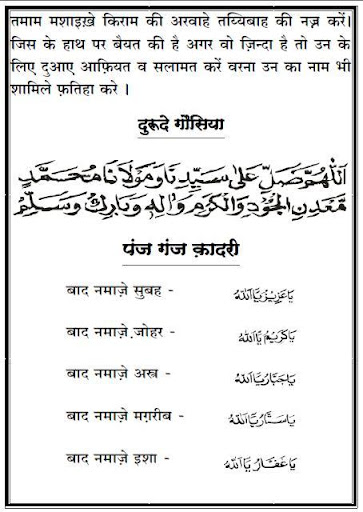 तमाम मशाइख़े किराम की अरवाहे तय्यिबाह की नज़्र करें।
जिस के हाथ पर बैयत की है अगर वो ज़िन्दा है तो उन के
लिए दुआए आफ़ियत व सलामत करें वरना उन का नाम भी
शामिले फ़तिहा करे ।
दुरूदे ग़ौसिया
اَللّٰهُمَّ صَلِّ عَلٰى سَيِّدِنَا وَمَوْلَانَا مُحَمَّدٍ
مَّعْدَنِ الْجُوْدِ وَالْكَرَمِ وَاٰلِهٖ وَبَارِكْ وَسَلِّمْ
पंज गंज क़ादरी
बाद नमाज़े सुबह - يَا عَزِيْزُ يَا اَللّٰهُ
बाद नमाज़े ज़ोहर - يَا كَرِيْمُ يَا اَللّٰهُ
बाद नमाज़े अस्र - يَا جَبَّارُ يَا اَللّٰهُ
बाद नमाज़े मग़रीब - يَا سَتَّارُ يَا اَللّٰهُ
बाद नमाज़े इशा - يَا غَفَّارُ يَا اَللّٰهُ